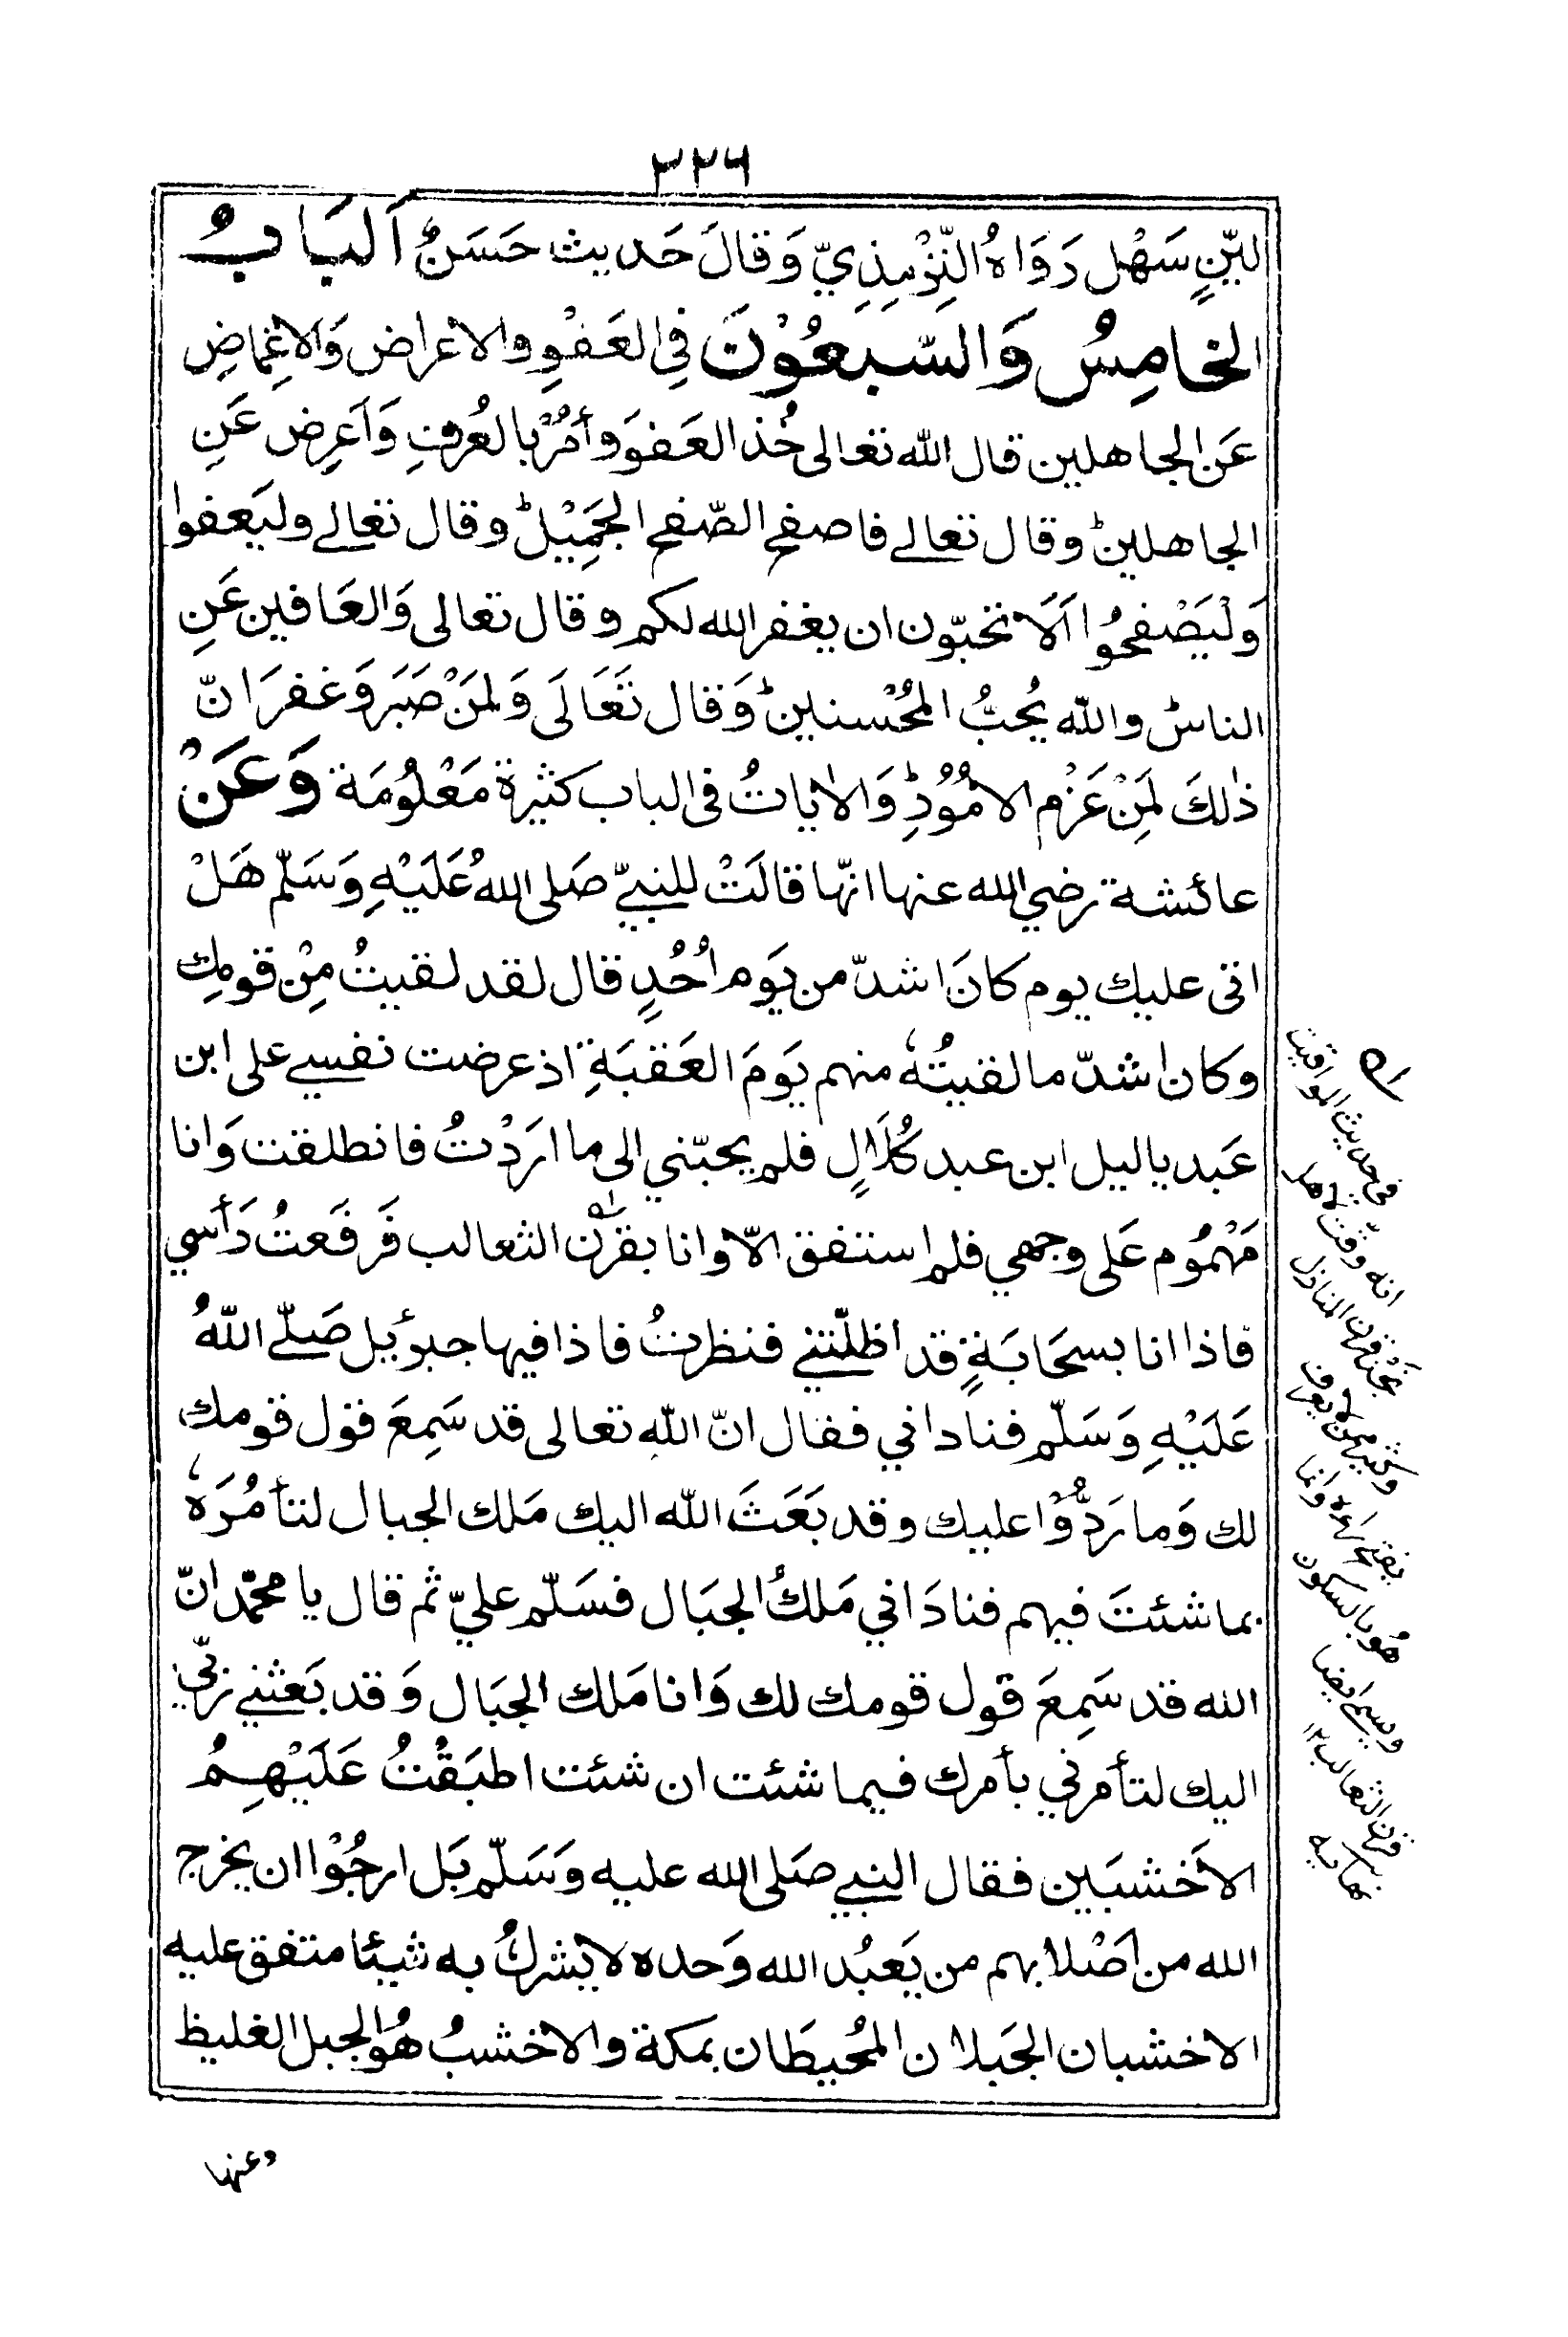 ٣٢٦
ليّنٍ سَهْل رَوَاهُ التِّرْمِذِيّ وَقالَ حَديث حَسَنٌ اَلبَابُ
الخامِسُ وَالسّبعُوْنَ فِي العَفْوِ والاعراض وَالاغِماضِ
عَن الجاهلين قال الله تعالى خُذ العَفوَ وأمُرْ بالعُرفِ وَاَعرِض عَنِ
الجاهلين وقال تعالے فاصفح الصّفح الجَمِيْل وقال تعالے وليَعفوا
وَلْيَصْفحُوا اَلَا تحبّون ان يغفر الله لكم وقال تعالى وَالعَافين عَنِ
الناس والله يُحبُّ المُحْسنين وَقال تَعَالَى وَلمَنْ صَبَرَ وَغفرَ انّ
ذٰلكَ لمَِنْ عَزْم الامُوُرِ وَالاٰياتُ فى الباب كثيرة مَعْلُومَة وَعَنْ
عائشة رضي الله عنها انّها قالَتْ للنبيّ صَلى اللهُ عَلَيْهِ وَسَلّم هَلْ
اتى عليك يوم كانَ اشدّ من يَوم اُحُدٍ قال لقد لقيتُ مِنْ قومِك
وكان اشدّ ما لقيتُهٗ منهم يَومَ العَقبَةِ اذ عرضت نفسے على ابن
عَبد ياليل ابن عبد كُلَالٍ فلم يحبّني الى ما ارَدْتُ فانطلقت وَانا
مَهْمُوم عَلى وجهي فلم استفق الّا وانا بقرْن الثعالب فَرفَعتُ رَأسي
فاذا انا بسحَابَةٍ قد اظلّتنے فنظرتُ فاذا فيها جبرئيل صَلّے اللّهُ
عَلَيْهِ وَسَلّم فناداني فقال انّ الله تعالى قد سَمِعَ قول قومك
لك وَما رَدُّوْا عليك وقد بَعَثَ الله اليك مَلك الجبال لتأمُرَهٗ
بما شئتَ فيهم فنادَاني مَلكُ الجبَال فسَلّم عليّ ثم قال يا محمّد انّ
الله قد سَمِعَ قول قومك لك وَانا مَلك الجبَال وَقد بَعثنے ربّي
اليك لتأمرني بأمرك فيما شئت ان شئت اطبَقْتُ عَلَيْهِمُ
الاَخشبَين فقال النبے صَلى الله عليه وَسَلّم بَل ارجُوْا ان يخرج
الله من اَصْلابهم من يَعبُد الله وَحده لا يُشركُ به شيئا متفق عليه
الاخشبان الجَبلان المُحيطَان بمكة والاخشبُ هُو الجبل الغليظ
فى حديث المواقيت
انه وقت لاهل
نجد قرن المنازل
وكثير ممن لا يعرف
يفتح راءه وانما
هُو بالسكون
ويسمى ايضا
قرن الثعالب ١٢
نهاية
وعنها